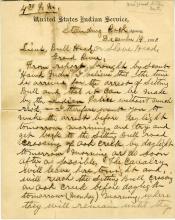 United States Indian Service,
Standing Rock Agency
December 14, 1890
Lieut. Bull Head or Shave Head
Grand River,
From report brought by Scout
Hawk Man I believe that the time
has arrived for the arrest of Sitting
Bull and that it can be made
by the Indian Police without much
risk. I therefore want you to
make the arrest before daylight
tomorrow morning and try and
get back to the Sitting Bull road
crossing of Oak Creek by daylight
tomorrow morning or as soon
after as possible. The Cavalry
will leave here tonight and
will reach the Sitting Bull crossing
on Oak Creek before daylight
tomorrow (Monday) morning, where
they will remain until they